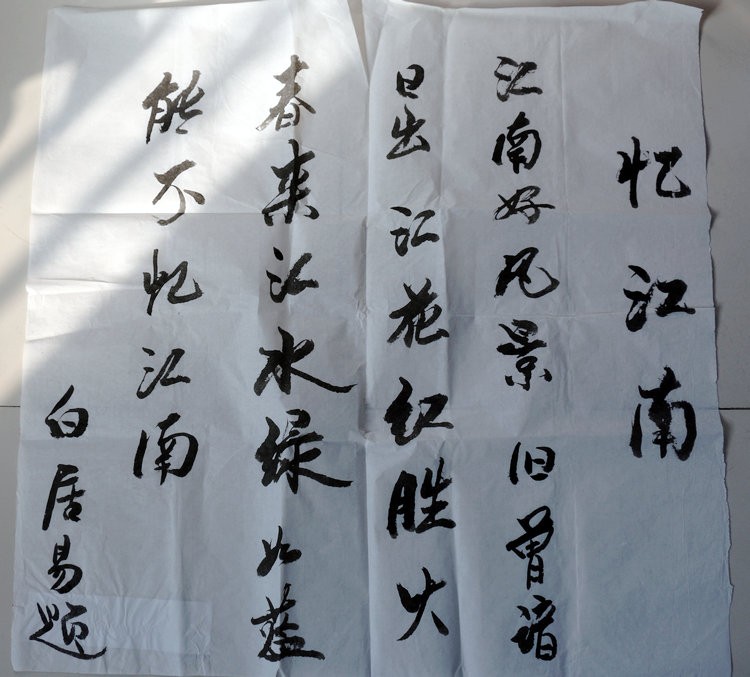 忆江南
江南好风景旧曾谙
日出江花红胜火
春来江水绿如蓝
能不忆江南
白居易题